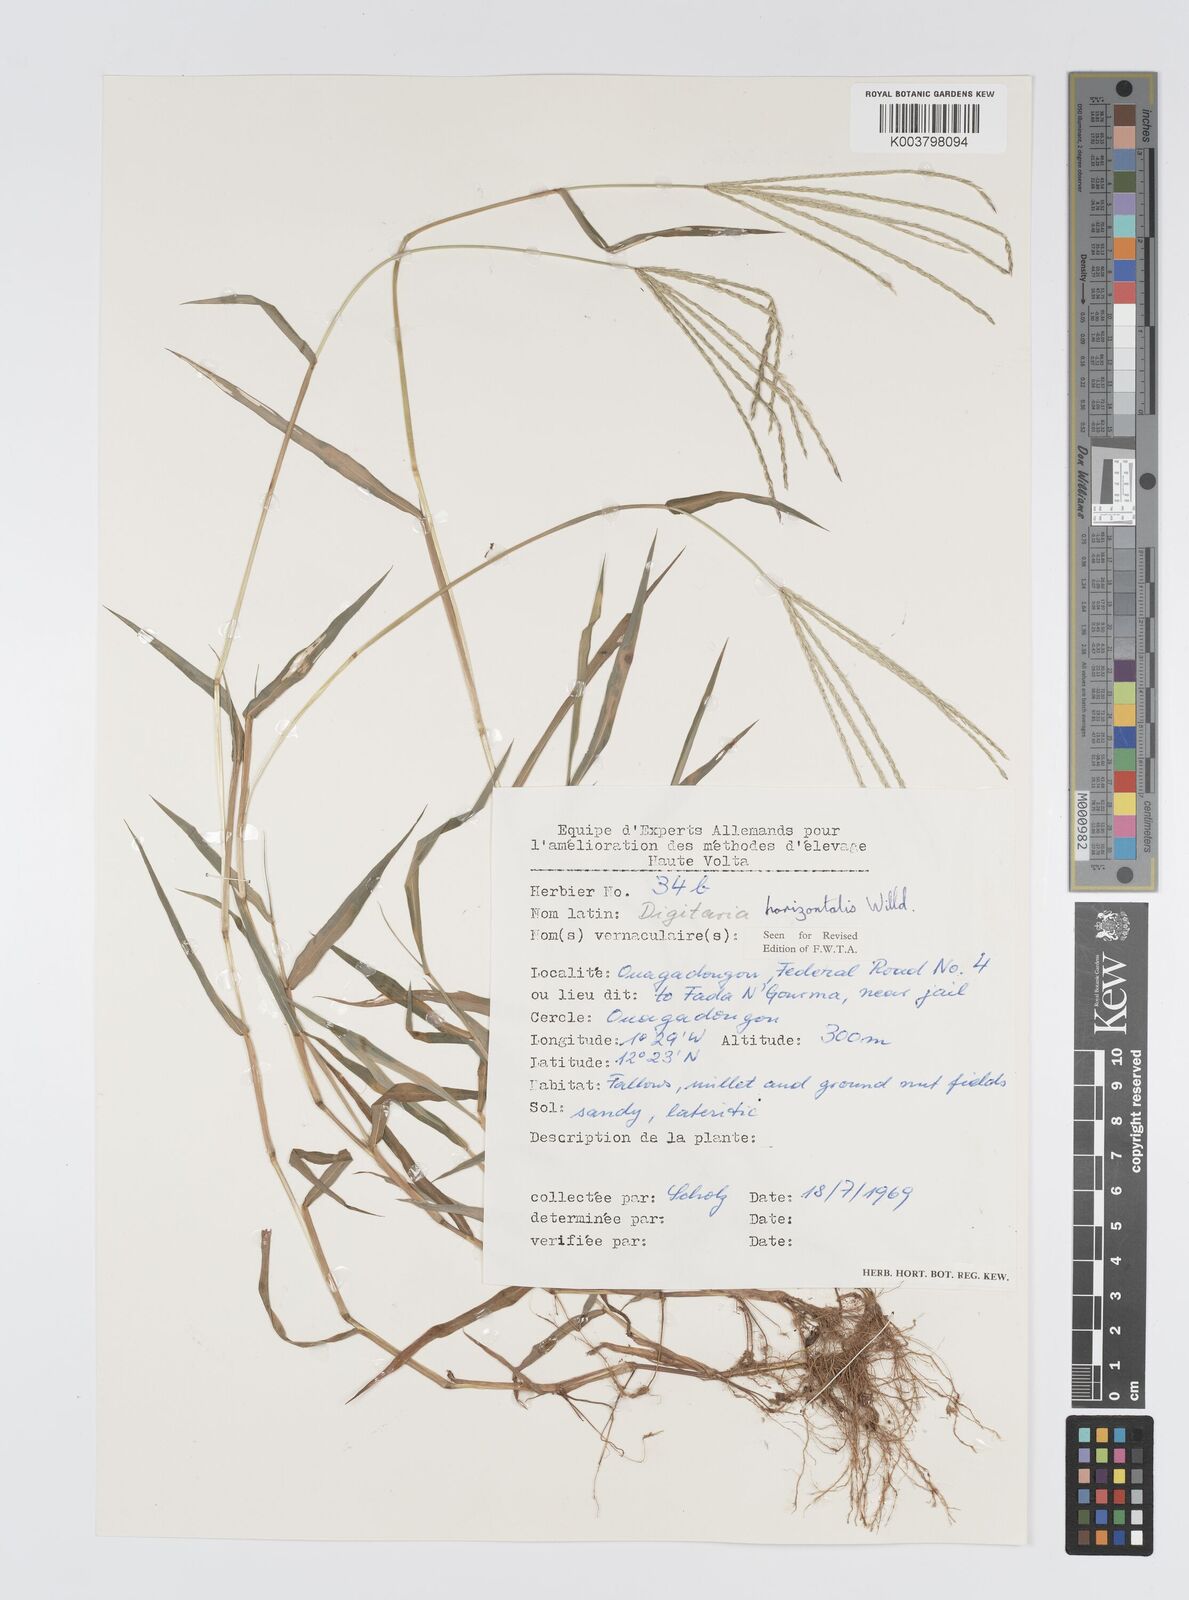 ROYAL BOTANIC GARDENS KEW
K003798094
Equipe d'Experts Allemands pour
l'amélioration des méthodes d'élevage
Haute Volta
Herbier No. 34 b
Nom latin: Digitaria horizontalis Willd.
Nom(s) vernaculaire(s): Seen for Revised
Edition of F.W.T.A.
Localité: Ouagadougou, Federal Road No. 4
ou lieu dit: to Fada N'Gourma, near jail
Cercle: Ouagadougou
Longitude: 1° 29' W Altitude: 300m
Latitude: 12° 23' N
Habitat: Fallows, millet and ground nut fields
Sol: sandy, lateritic
Description de la plante:
collectée par: Scholz Date: 18/7/1969
determinée par: Date:
verifiée par: Date:
HERB. HORT. BOT. REG. KEW.
inches
centimetres
Density
Don Williams
M000982
Royal Botanic Gardens
Kew
copyright reserved
10
9
8
7
6
5
4
3
2
1
0
cm